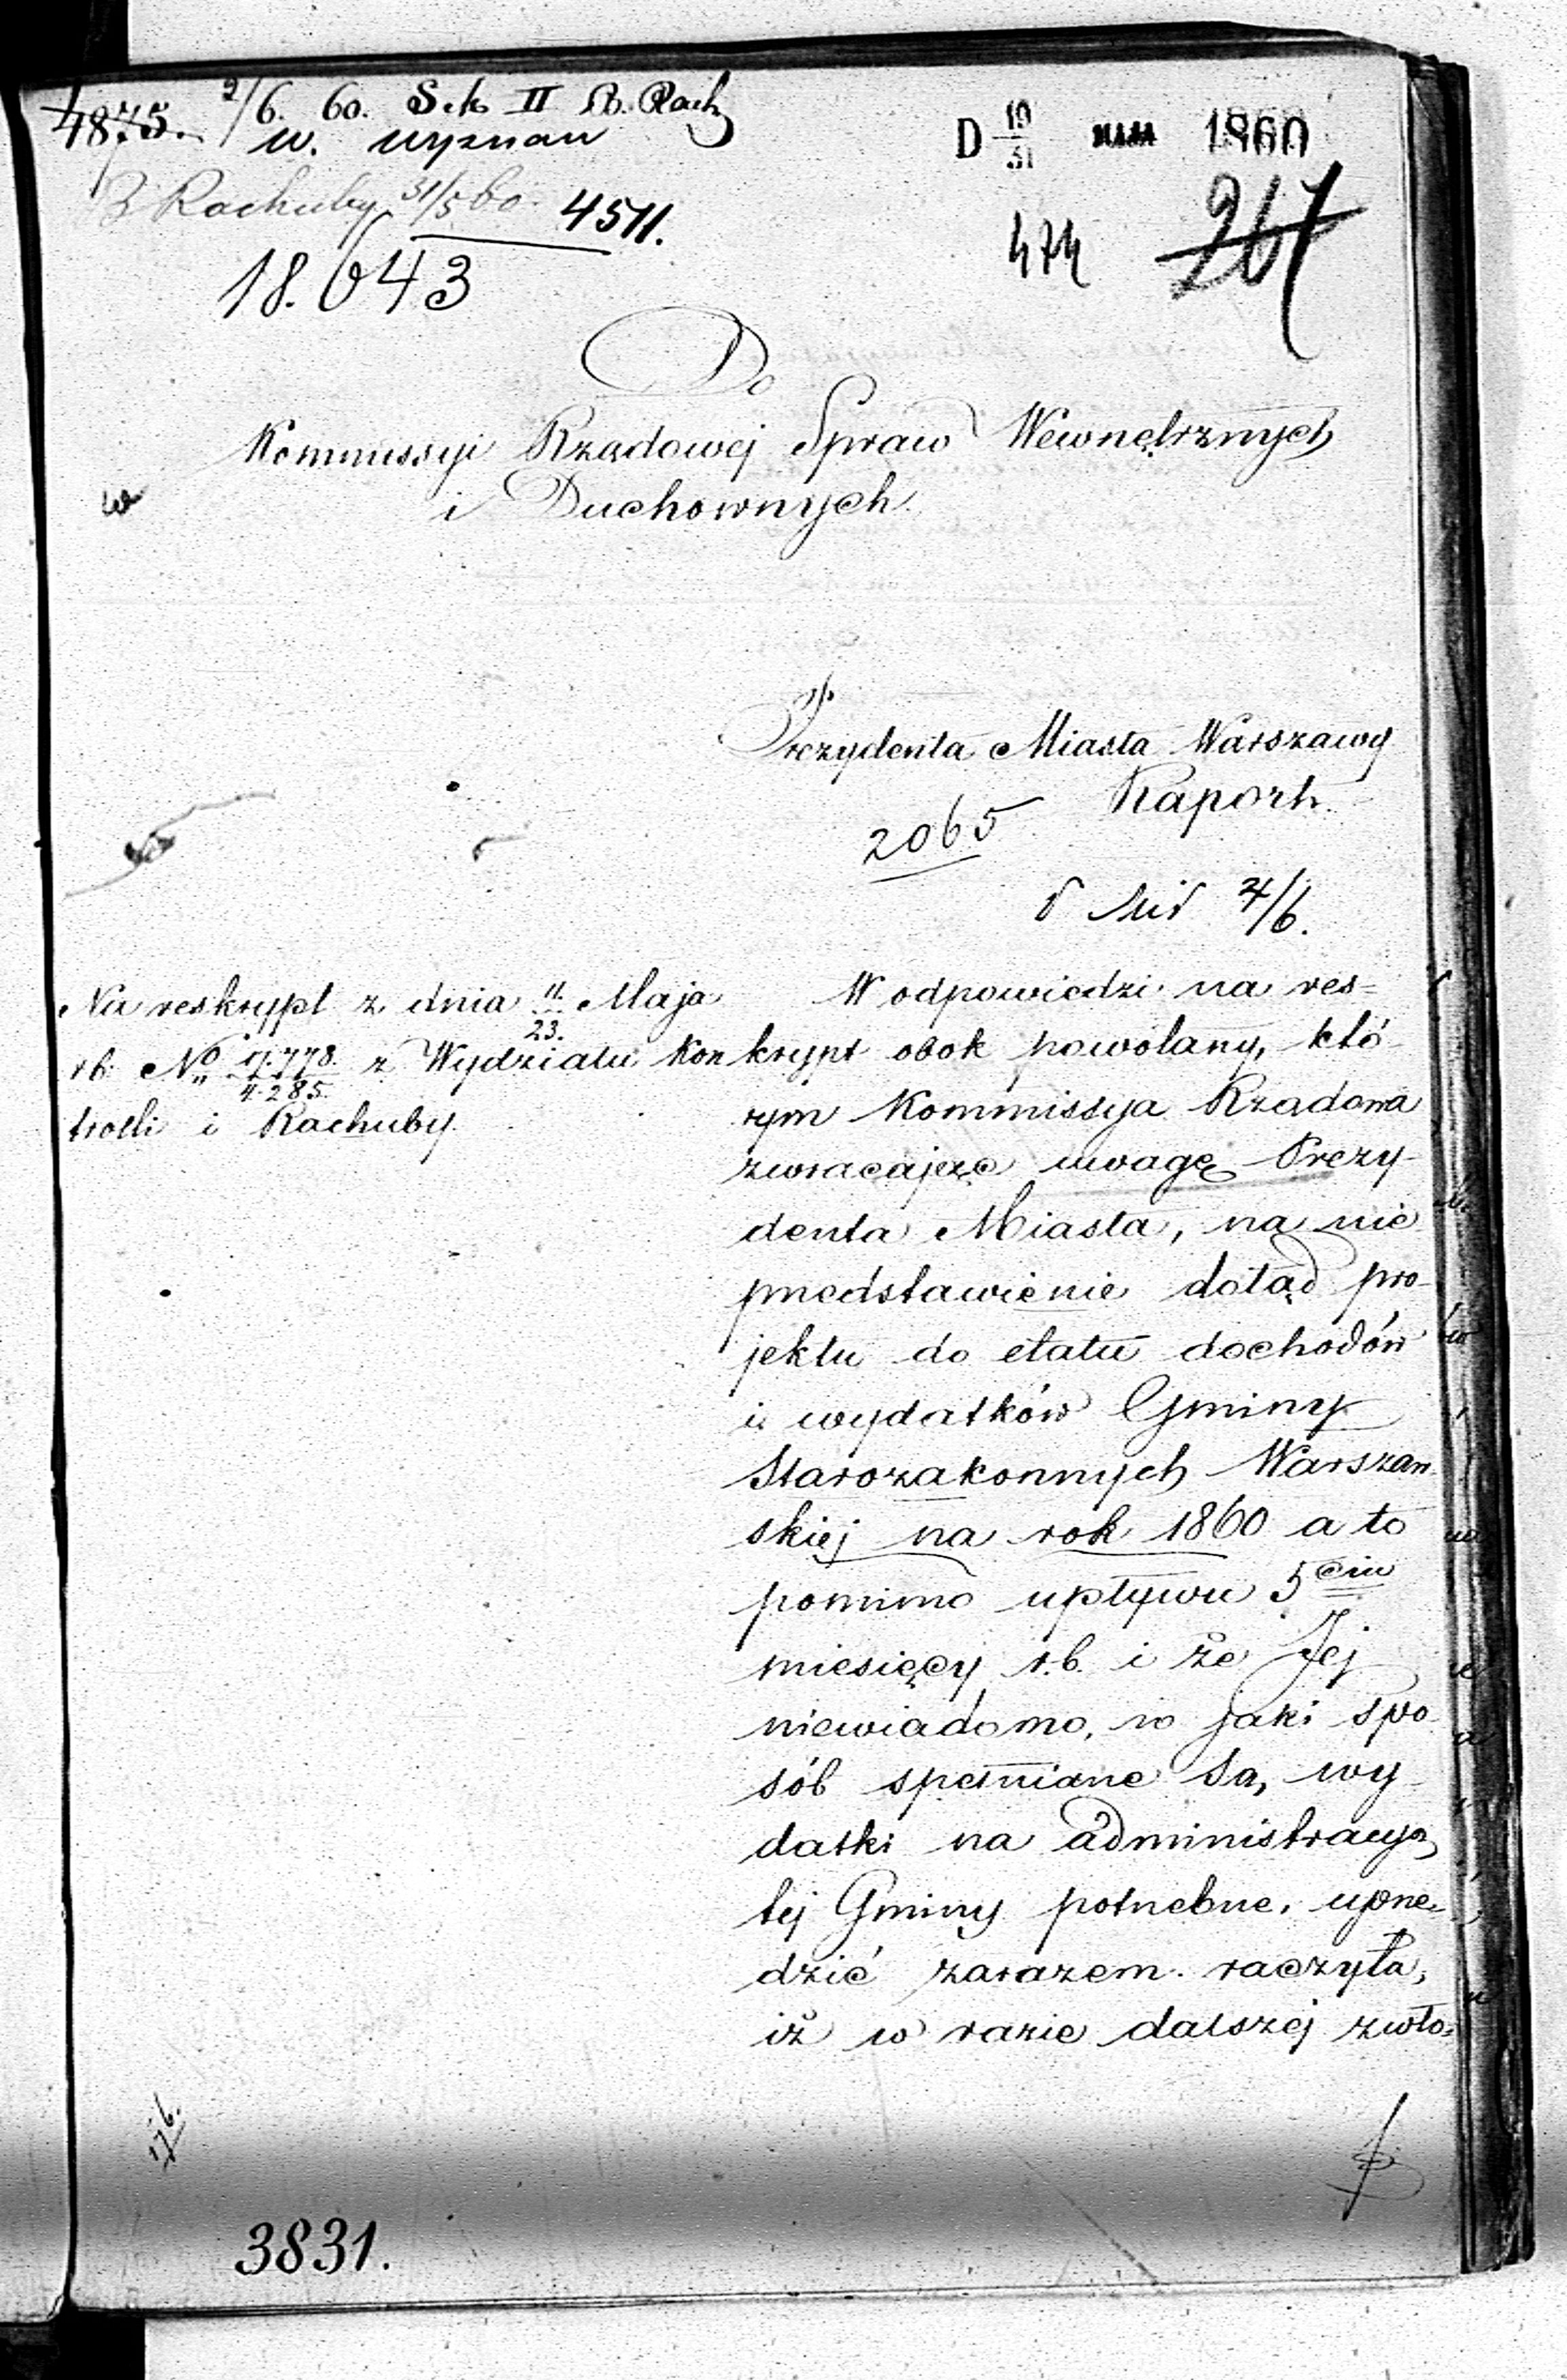 4875. 2/6. 60. Sek II B. Rach
w. wyznań
D 19/31 MAJA 1860
z Rachuby 31/5 60. 4511.
474 267
18.043
Do
Kommissyi Rządowej Spraw Wewnętrznych
i Duchownych.
Prezydenta Miasta Warszawy
Raport.
2065
4/6.
Na reskrypt z dnia 11/23. Maja
rb. No 17.778./4.285. z Wydziału Kon
trolli i Rachuby.
W odpowiedzi na res=
krypt obok powołany, któ-
rym Kommissya Rządowa
zwracając uwagę Prezy-
denta Miasta, na nie
przedstawienie dotąd pro-
jektu do etatu dochodów
i wydatków Gminy
Starozakonnych Warszaw
skiej na rok 1860 a to
pomimo upływu 5ciu
miesięcy r.b. i że Jej
niewiadomo, w jaki spo
sób spełniane są, wy-
datki na administracyą
tej Gminy potrzebne, uprze=
dzić zarazem raczyła,
iż w razie dalszej zwło=
176.
3831.